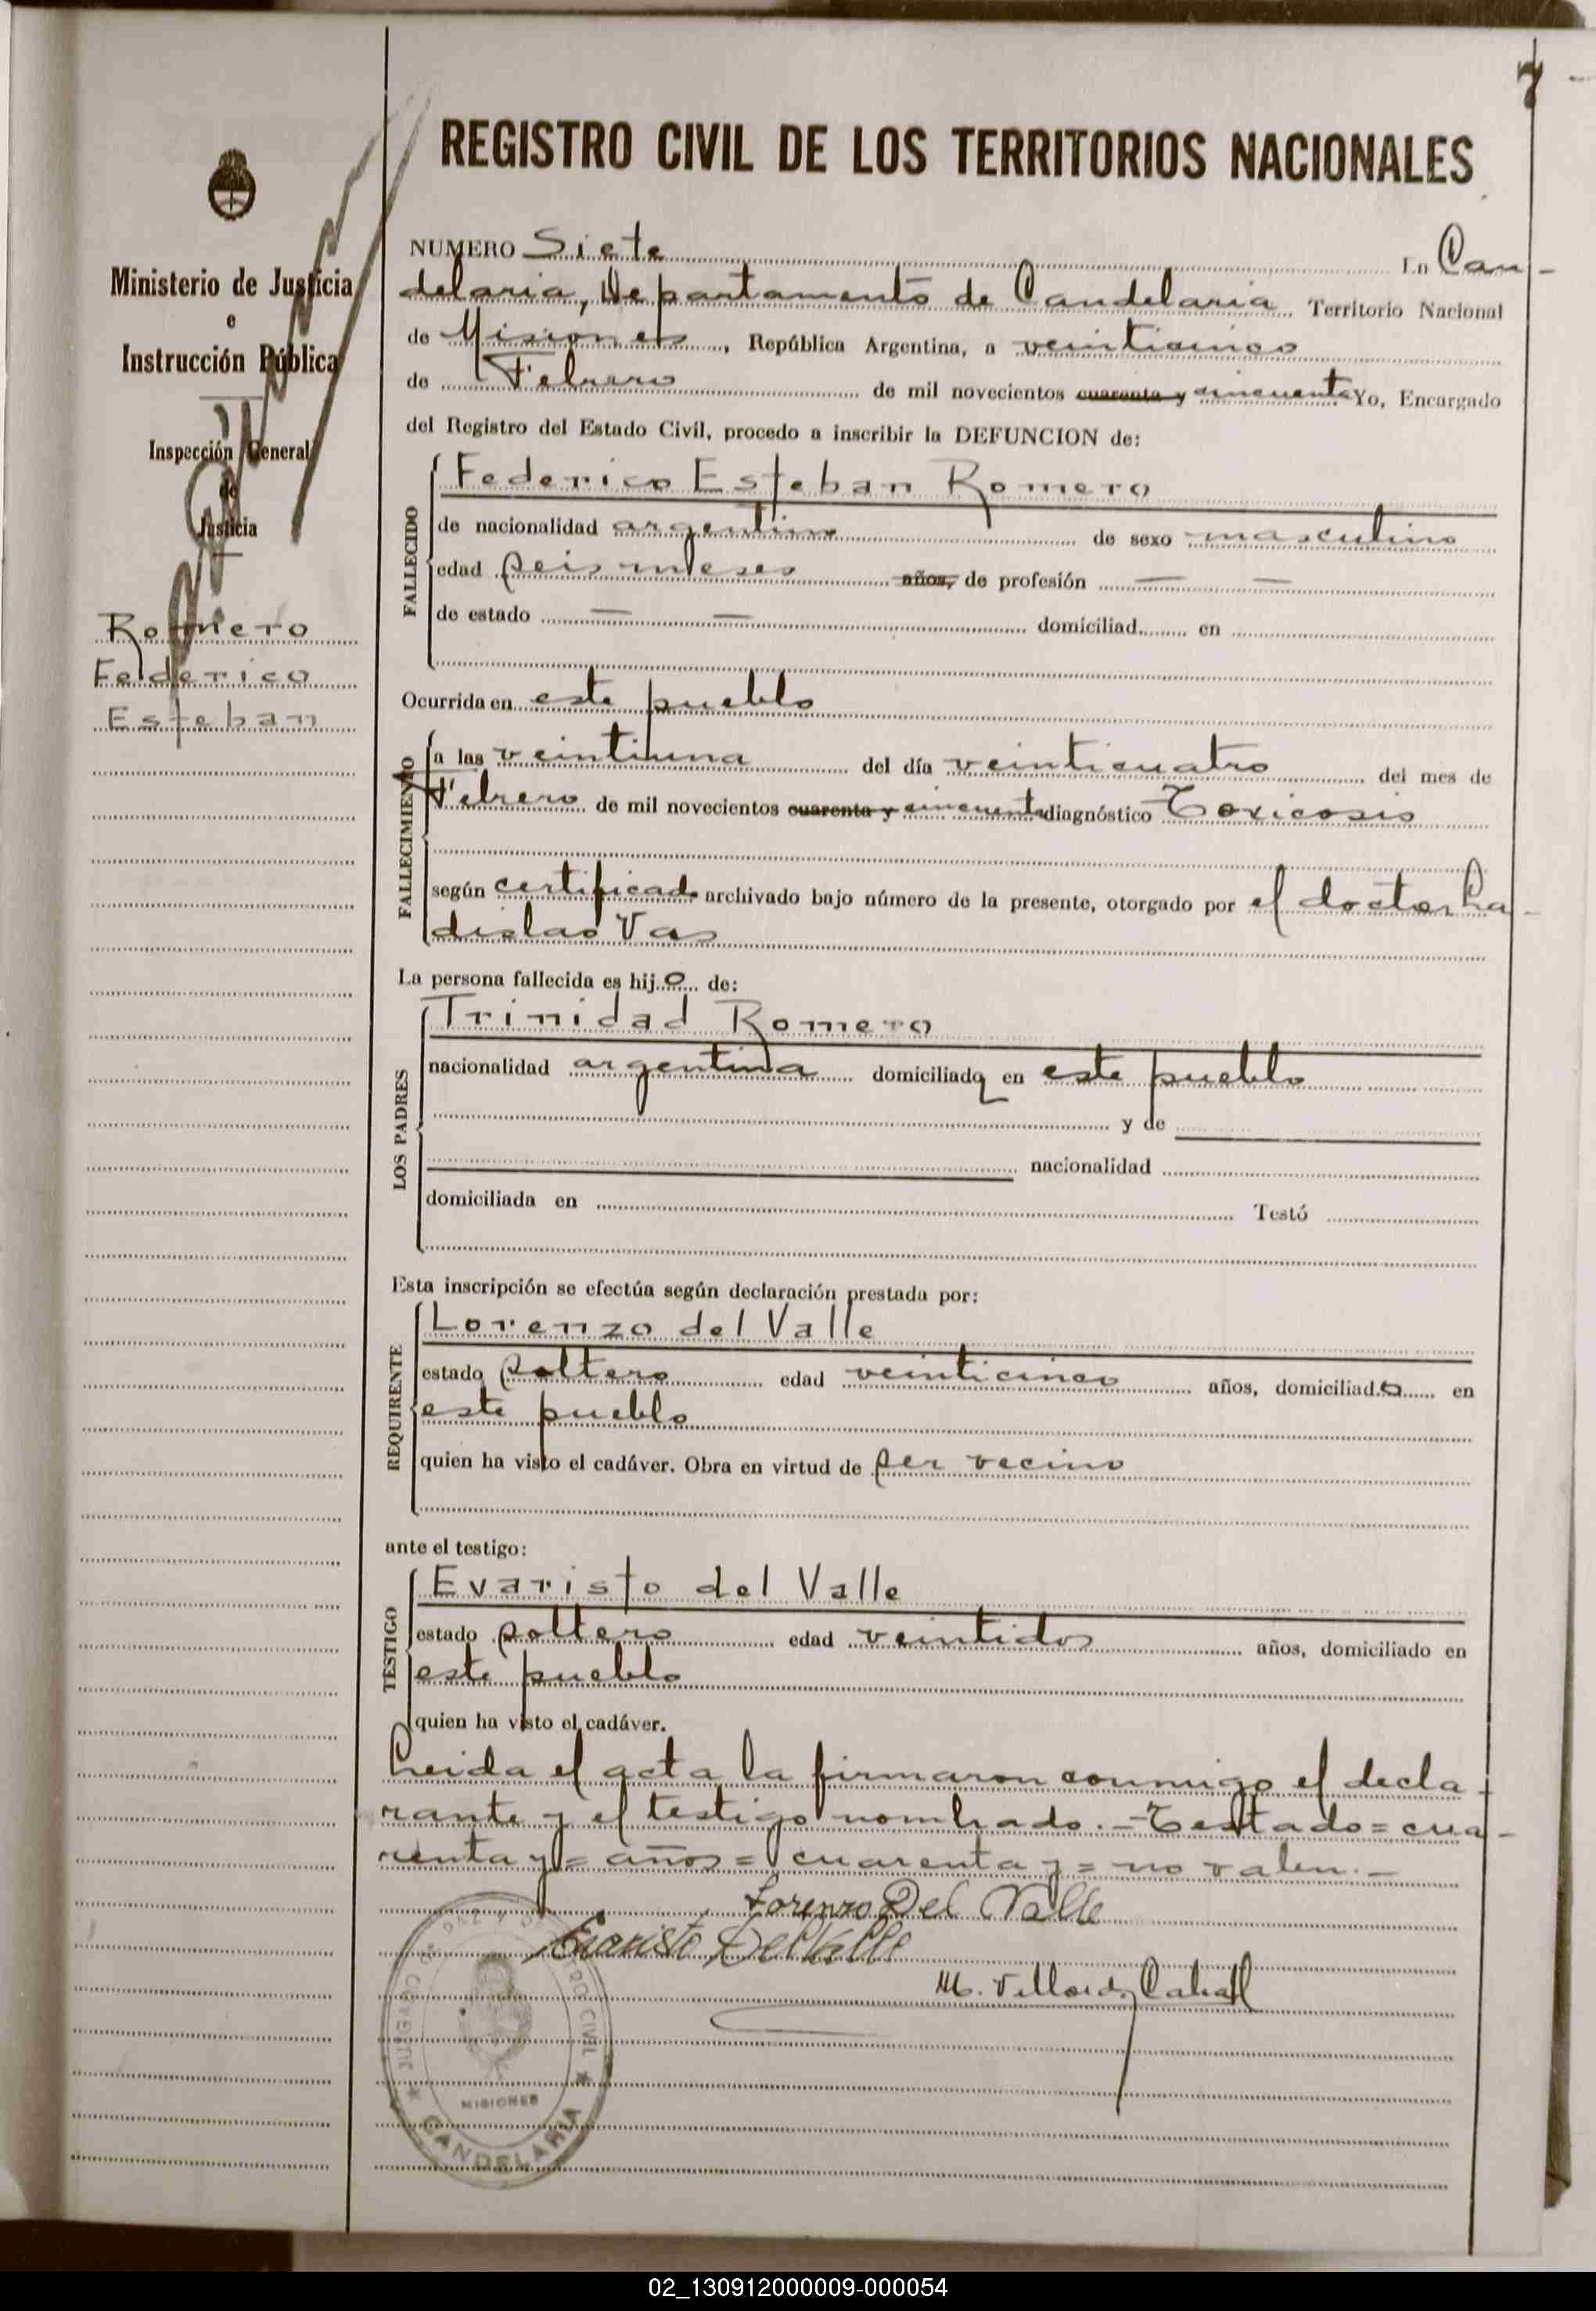 7
REGISTRO CIVIL DE LOS TERRITORIOS NACIONALES
Ministerio de Justicia
e
Instrucción Pública
Inspección General
de
Justicia
Romero
Federico
Esteban
NUMERO Siete En Can-
delaria, Departamento de Candelaria Territorio Nacional
de Misiones, República Argentina, a veinticinco
de Febrero de mil novecientos cuarenta y cincuenta Yo, Encargado
del Registro del Estado Civil, procedo a inscribir la DEFUNCION de:
FALLECIDO
Federico Esteban Romero
de nacionalidad argentino de sexo masculino
edad seis meses años, de profesión — —
de estado — — domiciliad en
Ocurrida en este pueblo
FALLECIMIENTO
a las veintiuna del día veinticuatro del mes de
Febrero de mil novecientos cuarenta y cincuenta diagnóstico Toxicosis
según certificado archivado bajo número de la presente, otorgado por el doctor La-
dislao Vas
La persona fallecida es hijo de:
LOS PADRES
Trinidad Romero
nacionalidad argentina domiciliada en este pueblo
y de
nacionalidad
domiciliada en Testó
Esta inscripción se efectúa según declaración prestada por:
REQUIRENTE
Lorenzo del Valle
estado soltero edad veinticinco años, domiciliado en
este pueblo
quien ha visto el cadáver. Obra en virtud de ser vecino
ante el testigo:
TESTIGO
Evaristo del Valle
estado soltero edad veintidos años, domiciliado en
este pueblo
quien ha visto el cadáver.
Leida el acta la firmaron conmigo el decla-
rante y el testigo nombrado.-Testado=cua-
renta y= años= cuarenta y= no valen.-
Lorenzo Del Valle
Evaristo Del Valle
JUZGADO DE PAZ Y REGISTRO CIVIL
MISIONES
CANDELARIA
02_130912000009-000054